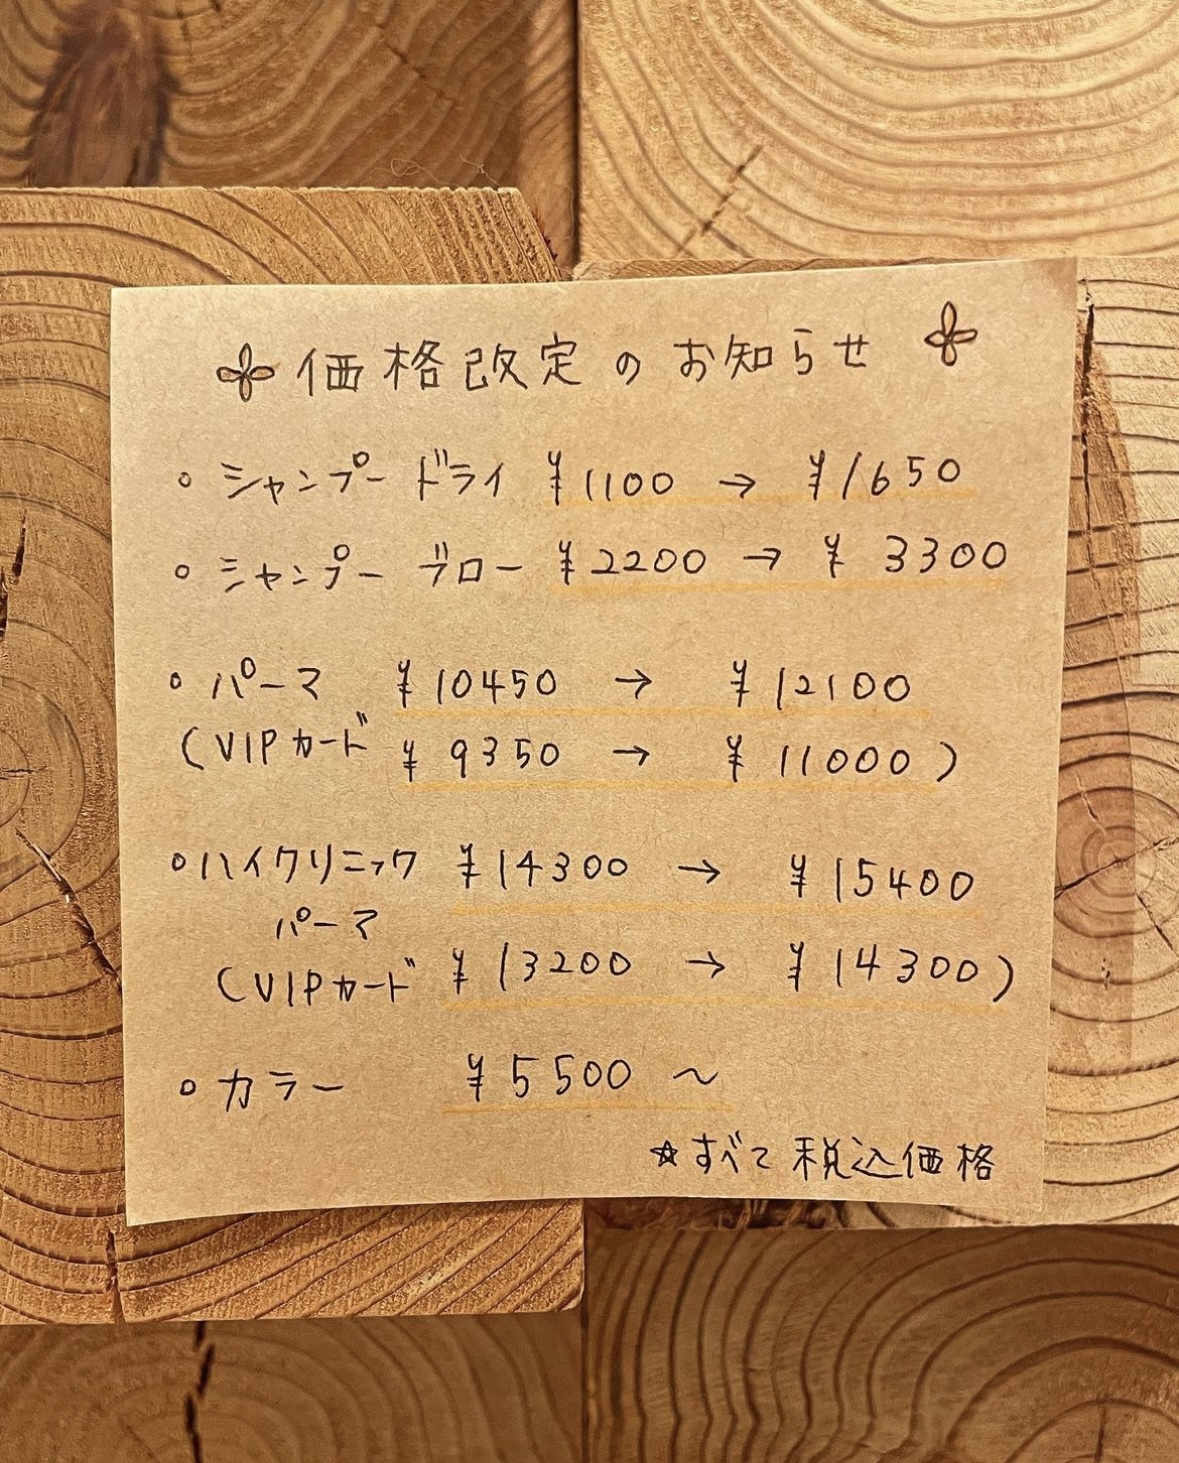 価格改定のお知らせ
◦ シャンプー ドライ ¥1100 → ¥1650
◦ シャンプー ブロー ¥2200 → ¥3300
◦ パーマ ¥10450 → ¥12100
(VIPカード ¥9350 → ¥11000)
◦ ハイクリニック ¥14300 → ¥15400
パーマ
(VIPカード ¥13200 → ¥14300)
◦ カラー ¥5500 〜
☆すべて税込価格